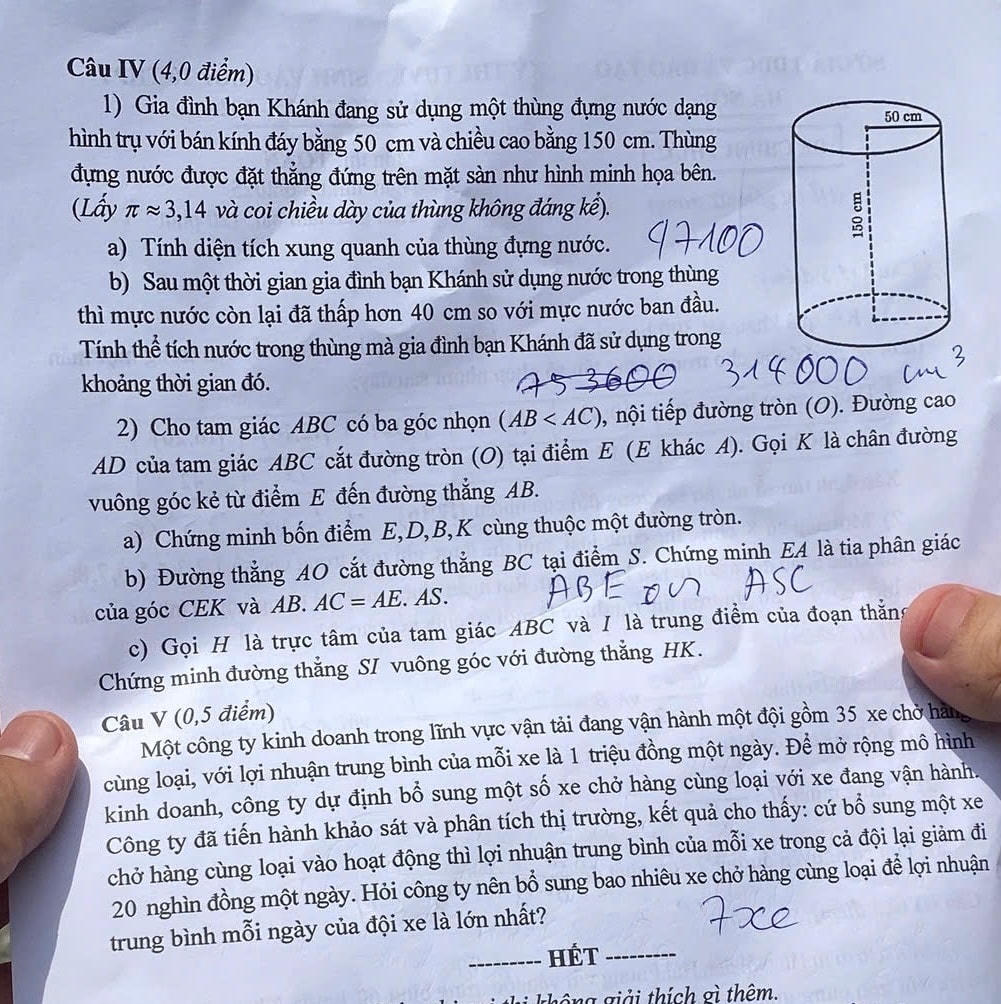 Câu IV (4,0 điểm)
1) Gia đình bạn Khánh đang sử dụng một thùng đựng nước dạng
hình trụ với bán kính đáy bằng 50 cm và chiều cao bằng 150 cm. Thùng
đựng nước được đặt thẳng đứng trên mặt sàn như hình minh họa bên.
(Lấy π ≈ 3,14 và coi chiều dày của thùng không đáng kể).
a) Tính diện tích xung quanh của thùng đựng nước. 47100
b) Sau một thời gian gia đình bạn Khánh sử dụng nước trong thùng
thì mực nước còn lại đã thấp hơn 40 cm so với mực nước ban đầu.
Tính thể tích nước trong thùng mà gia đình bạn Khánh đã sử dụng trong
khoảng thời gian đó. 753600 314000 cm³
50 cm
150 cm
2) Cho tam giác ABC có ba góc nhọn (AB < AC), nội tiếp đường tròn (O). Đường cao
AD của tam giác ABC cắt đường tròn (O) tại điểm E (E khác A). Gọi K là chân đường
vuông góc kẻ từ điểm E đến đường thẳng AB.
a) Chứng minh bốn điểm E,D,B,K cùng thuộc một đường tròn.
b) Đường thẳng AO cắt đường thẳng BC tại điểm S. Chứng minh EA là tia phân giác
của góc CEK và AB. AC = AE. AS. ABE ∽ ASC
c) Gọi H là trực tâm của tam giác ABC và I là trung điểm của đoạn
Chứng minh đường thẳng SI vuông góc với đường thẳng HK.
Câu V (0,5 điểm)
Một công ty kinh doanh trong lĩnh vực vận tải đang vận hành một đội gồm 35 xe chở hàng
cùng loại, với lợi nhuận trung bình của mỗi xe là 1 triệu đồng một ngày. Để mở rộng mô hình
kinh doanh, công ty dự định bổ sung một số xe chở hàng cùng loại với xe đang vận hành.
Công ty đã tiến hành khảo sát và phân tích thị trường, kết quả cho thấy: cứ bổ sung một xe
chở hàng cùng loại vào hoạt động thì lợi nhuận trung bình của mỗi xe trong cả đội lại giảm đi
20 nghìn đồng một ngày. Hỏi công ty nên bổ sung bao nhiêu xe chở hàng cùng loại để lợi nhuận
trung bình mỗi ngày của đội xe là lớn nhất? 7 xe
--------- HẾT ---------
thi không giải thích gì thêm.